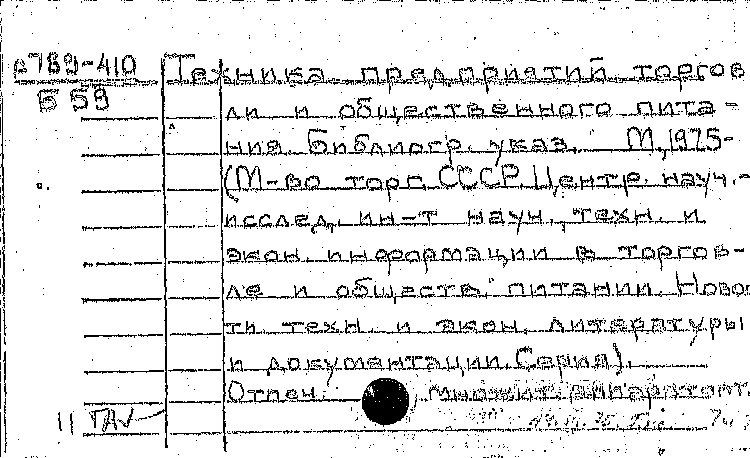 с789-410
Б 59
Техника предприятий торгов
ли и общественного пита-
ния. Библиогр. указ. М., 1975-
(М-во торг. СССР. Центр. науч.-
исслед. ин-т науч., техн. и
экон. информации в торгов-
ле и обществ. питании. Новос
ти техн. и экон. литературы
и документации. Серия).
Отпеч. множит. аппаратом.